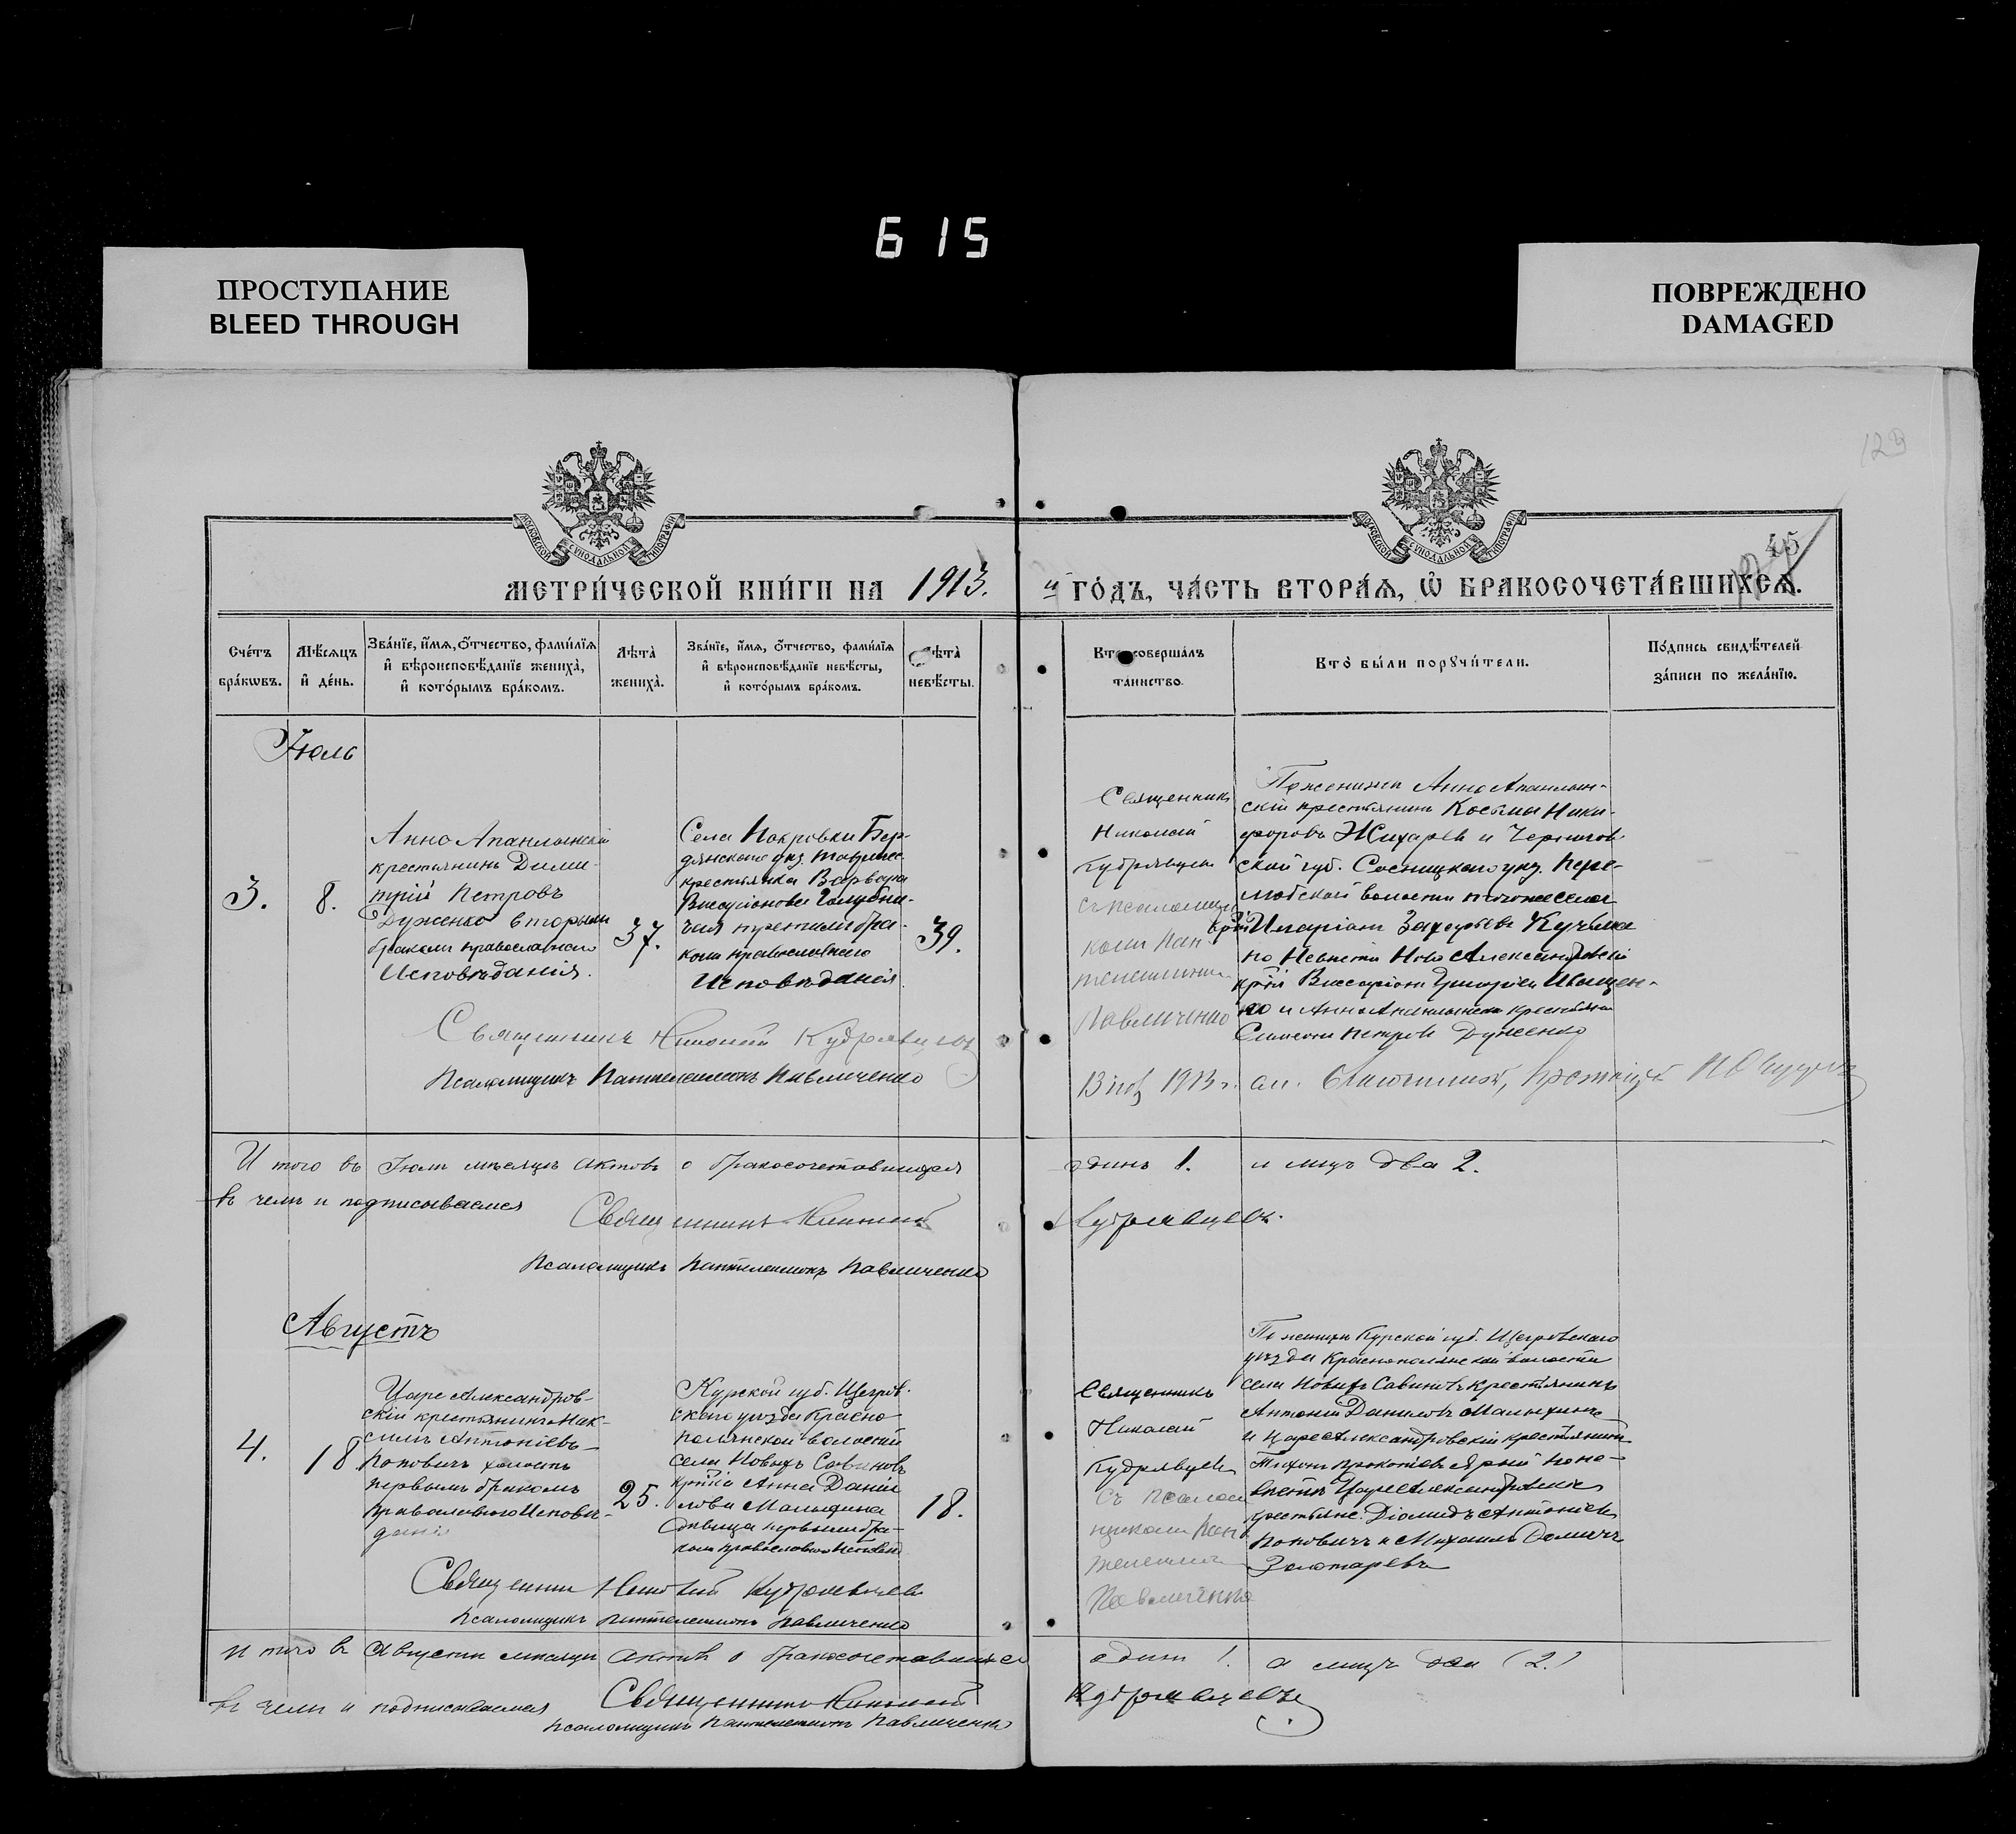 615
ПРОСТУПАНИЕ
BLEED THROUGH
ПОВРЕЖДЕНО
DAMAGED
129
МОСКОВСКОЙ СУНОДАЛЬНОЙ ТИПОГРАФІИ
МОСКОВСКОЙ СУНОДАЛЬНОЙ ТИПОГРАФІИ
45
МЕТРИ́ЧЕСКОЙ КНИ́ГИ НА 1913.
й ГО́ДЪ, ЧА́СТЬ ВТОРА́Ѧ, Ѽ БРАКОСОЧЕТА́ВШИХСѦ.
Сче́тъ бра́кѡвъ.
Мѣ́сяцъ и҆ де́нь.
Зва́нїе, и҆́мѧ, ѻ҆́тчество, фами́лїѧ и҆ вѣроисповѣ́данїе жениха̀, и҆ кото́рымъ бра́комъ.
Лѣ́та̀ жениха̀.
Зва́нїе, и҆́мѧ, ѻ҆́тчество, фами́лїѧ и҆ вѣроисповѣ́данїе невѣ́сты, и҆ кото́рымъ бра́комъ.
Лѣ́та̀ невѣ́сты.
Кто̀ соверша́лъ та́инство.
Кто̀ бы́ли порꙋчи́тели.
По́дпись свидѣ́телей за́писи по жела́нїю.
Іюль
3.
8.
Анно Апанлынскій
крестьянинъ Дими-
трій Петровъ
Дуженко вторымъ
бракомъ православнаго
Исповѣданія.
37.
Села Покровки Бер-
дянскаго уѣз. Таврич.
крестьянка Варвара
Виссаріонова Голубни-
чая третьимъ бра-
комъ православнаго
Исповѣданія.
39.
Священникъ
Николай
Кудрявцевъ
съ псаломщи
комъ Пан
телеимономъ
Павличенко
По женихѣ Анно Апанлын-
скій крестьянинъ Косьма Ники-
форовъ Жихаревъ и Чернигов-
ской губ. Сосницкаго уѣз.
волости того же села
Иларіонъ Захарьевъ Кучьма
по Невѣстѣ Ново Александровскій
Виссаріонъ Григорьевъ Иващен-
ко и Анно Апанлынскій крестьянинъ
Симеонъ Петровъ Дуженко
Священникъ Николай Кудрявцевъ
Псаломщикъ Пантелеимонъ Павличенко
1913 г.
Итого въ Іюлѣ мѣсяцѣ актовъ о бракосочетавшихся
одинъ 1. и лицъ два 2.
въ чемъ и подписываемся
Священникъ Николай
Кудрявцевъ.
Псаломщикъ Пантелеимонъ Павличенко
Августъ
4.
18
Царе Александров-
скій крестьянинъ Мак-
симъ Антоніевъ
Поповичъ холостъ
первымъ бракомъ
православнаго Исповѣ-
данія
25.
Курской губ. Щигров-
скаго уѣзда Красно-
полянской волости
села Новыхъ Савиновъ
Анна Даніи
лова Малыхина
дѣвица первымъ бра-
комъ православнаго Исповѣд
18.
Священникъ
Николай
Кудрявцевъ
съ псалом
щикомъ Пан
телеимон
Павличенко
По женихѣ Курской губ. Щигровскаго
уѣзда Краснополянской волости
села Новыхъ Савиновъ крестьянинъ
Антоній Даниловъ Малыхинъ
и ЦареАлександровскій крестьянинъ
Тихонъ Прокопіевъ Ярый по не-
вѣстѣ ЦареАлександровскіе
крестьяне: Діомидъ Антоніевъ
Поповичъ и Михаилъ
Золотаревъ
Священникъ Николай Кудрявцевъ
Псаломщикъ Пантелеимонъ Павличенко
Итого въ Августѣ мѣсяцѣ актовъ о бракосочетавшихся
одинъ 1. а лицъ два (2.)
въ чемъ и подписываемся
Священникъ Николай
Кудрявцевъ.
Псаломщикъ Пантелеимонъ Павличенко